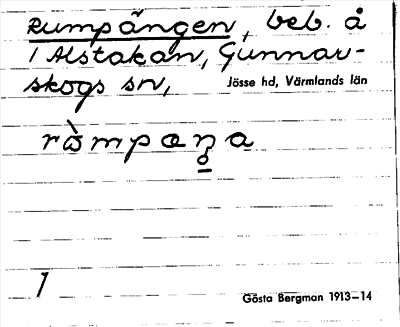 Rumpängen, beb. å
1 Alstakan, Gunnar-
skogs sn, Jösse hd, Värmlands län
ròmpæŋa
1
Gösta Bergman 1913–14